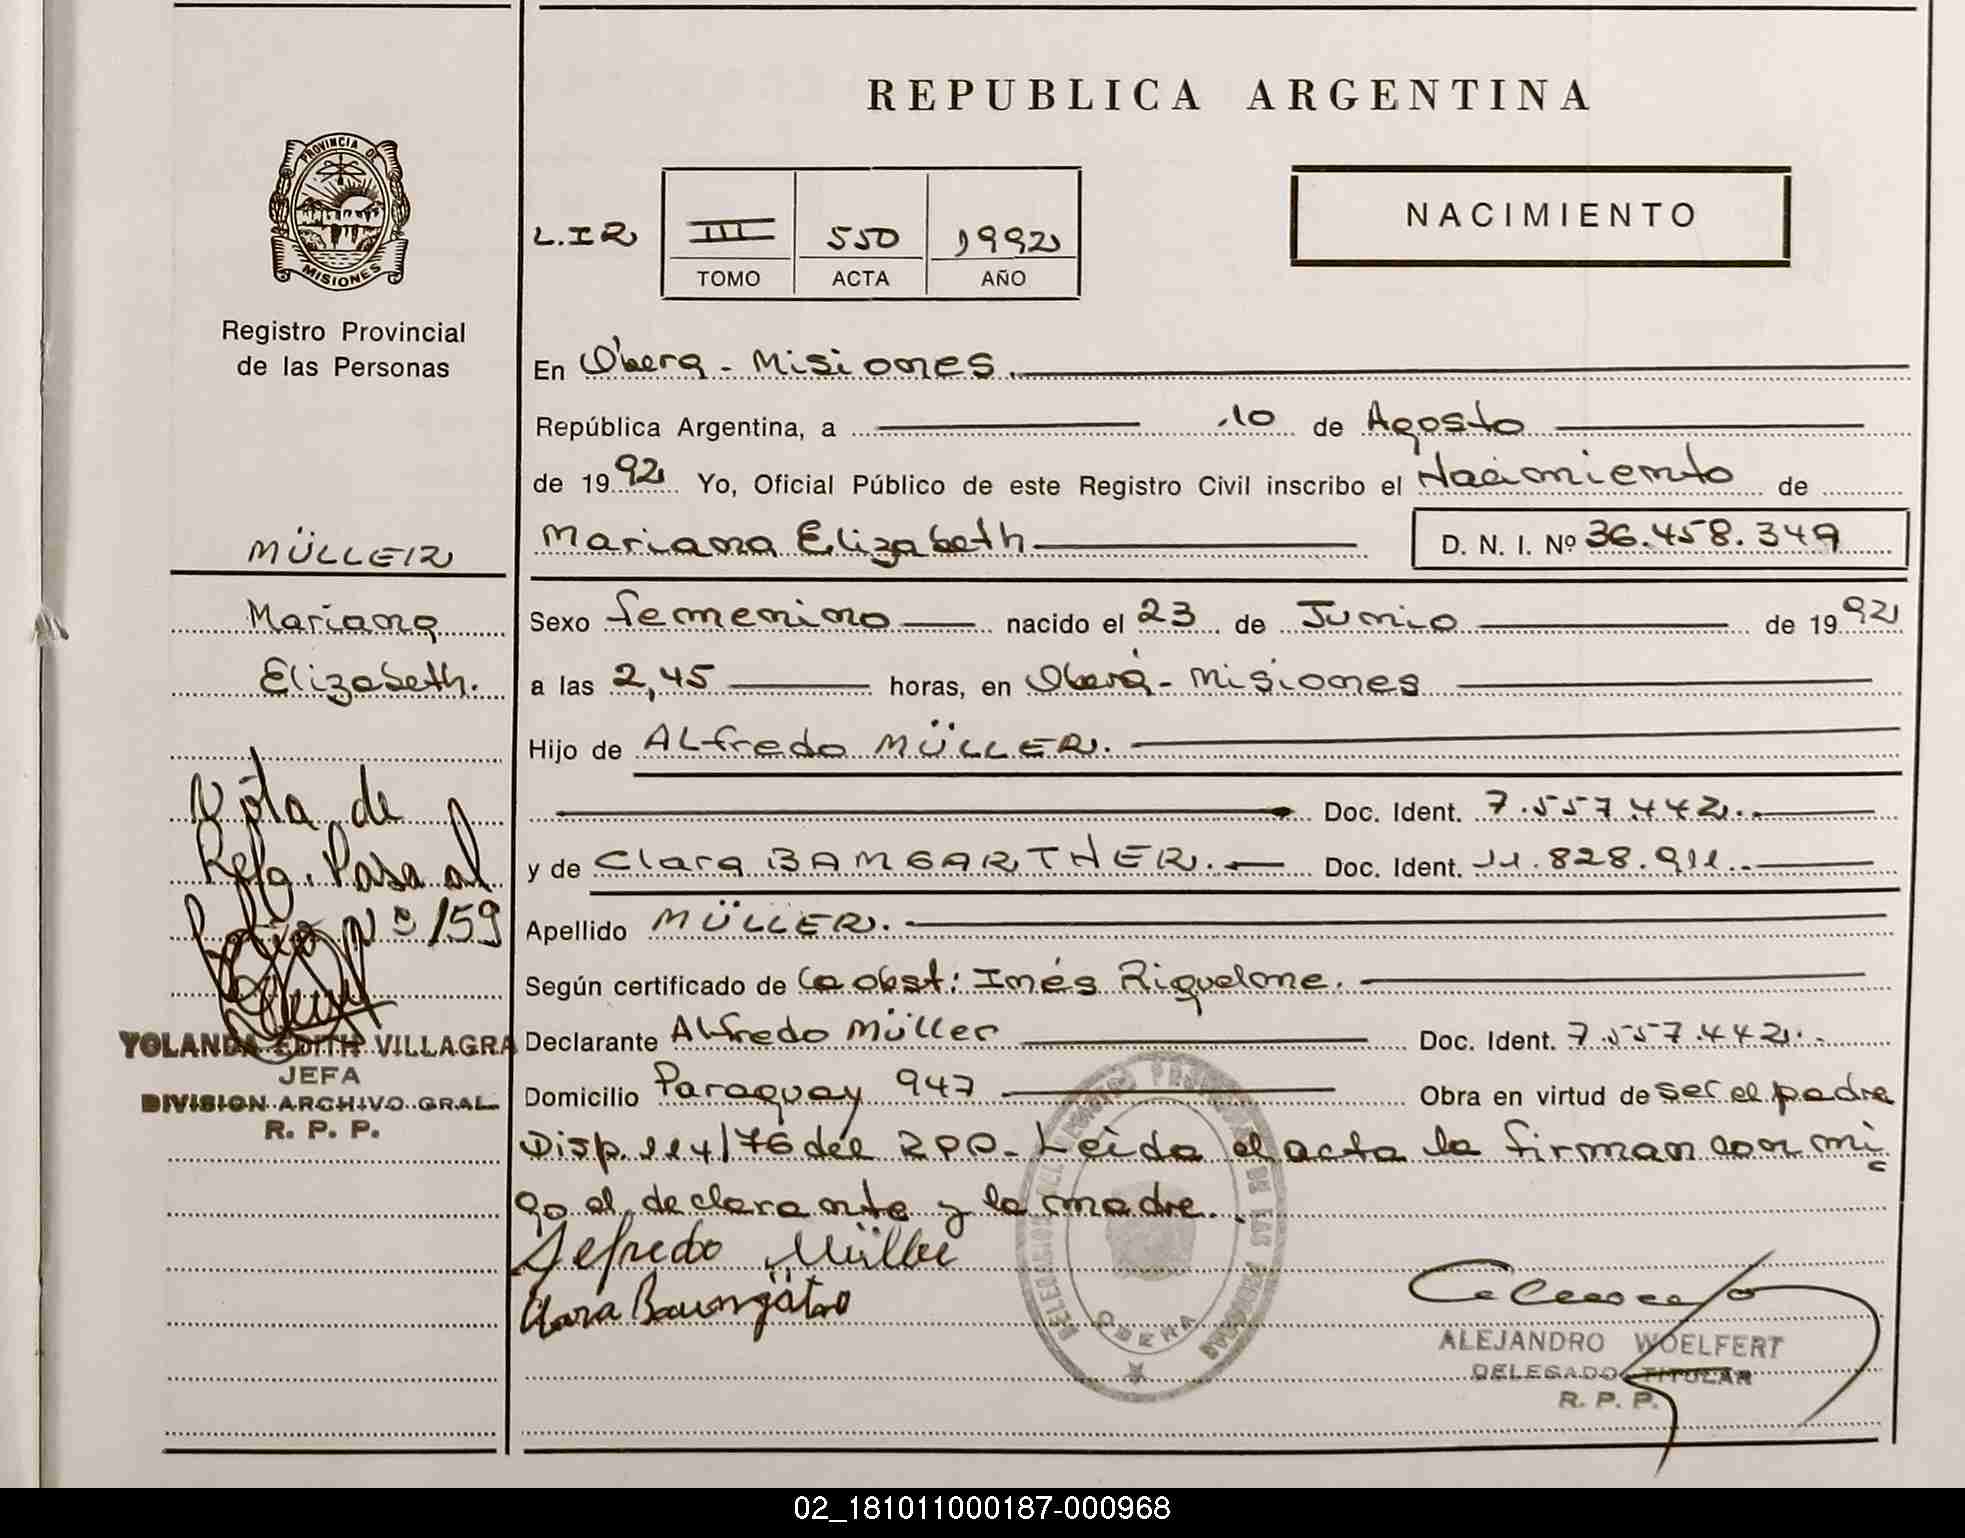 REPUBLICA ARGENTINA
PROVINCIA DE
MISIONES
Registro Provincial
de las Personas
L.I.R
III 550 1992
TOMO ACTA AÑO
NACIMIENTO
En Oberá - Misiones.
República Argentina, a 10 de Agosto
de 1992 Yo, Oficial Público de este Registro Civil inscribo el Nacimiento de
Mariana Elizabeth D. N. I. Nº 36.458.349
Sexo femenino nacido el 23 de Junio de 1992
a las 2,45 horas, en Oberá - Misiones
Hijo de Alfredo MÜLLER.
Doc. Ident. 7.557.442.
y de Clara BAMGARTNER. Doc. Ident. 11.828.911.
Apellido MÜLLER.
Según certificado de la obst: Inés Riquelme.
Declarante Alfredo Müller Doc. Ident. 7.557.442.
Domicilio Paraguay 947 Obra en virtud de ser el padre
Disp. 114/76 del RPP- Leida el acta la firman con mi
go el declarante y la madre.
Alfredo Müller
Clara Baumgärtner
DELEGACION DEL REGISTRO PROVINCIAL DE LAS PERSONAS
OBERA
ALEJANDRO WOELFERT
DELEGADO TITULAR
R. P. P.
MÜLLER
Mariana
Elizabeth.
Nota de
Refa. Pasa al
Folio Nº 159
YOLANDA EDITH VILLAGRA
JEFA
DIVISION ARCHIVO GRAL
R. P. P.
02_181011000187-000968